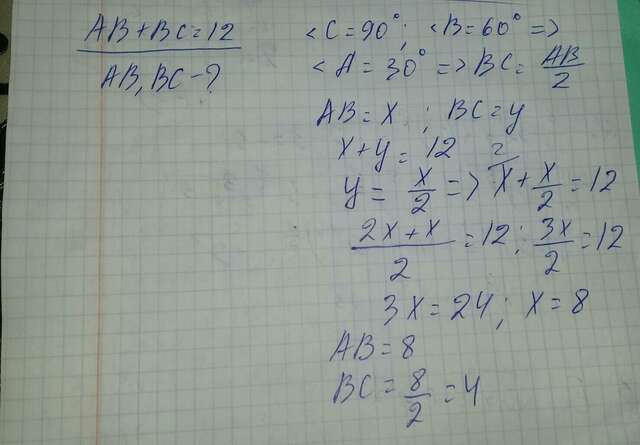 AB+BC=12
AB, BC-?
<C=90°; <B=60° =>
<A=30° => BC = AB/2
AB=x ; BC=y
x+y=12
y = x/2 => 2/x + x/2 = 12
2x+x/2 = 12; 3x/2 = 12
3x=24; x=8
AB=8
BC = 8/2 = 4